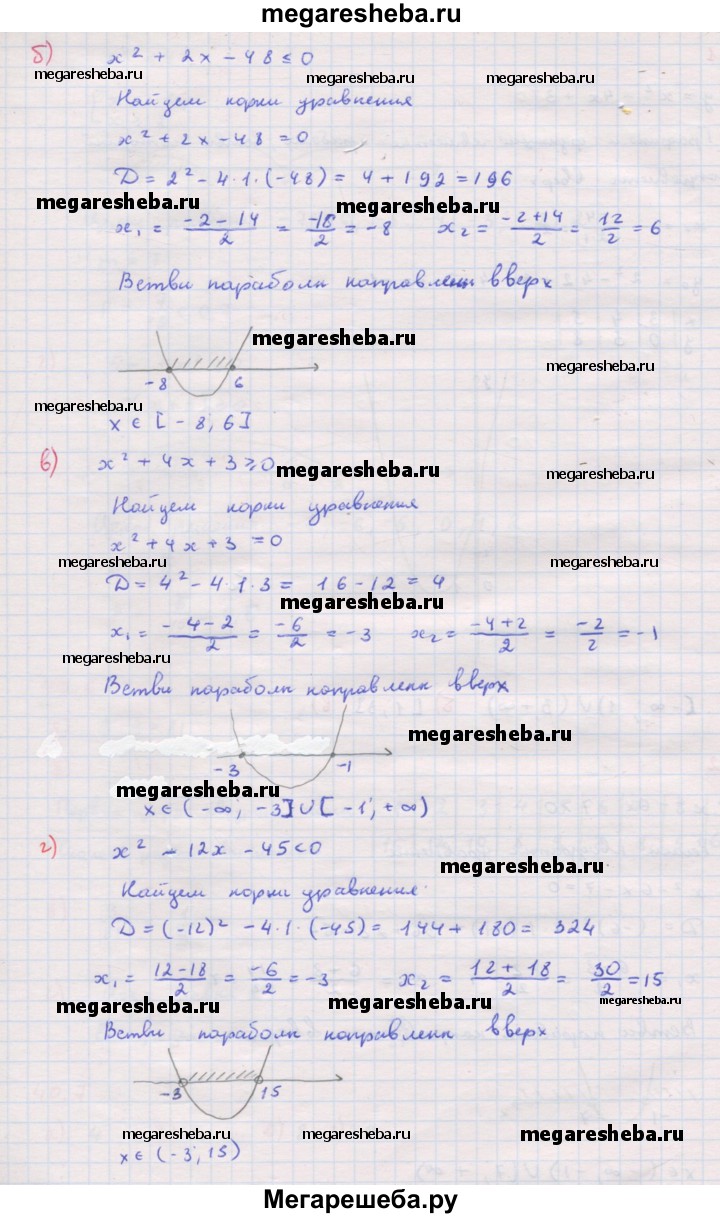 megaresheba.ru
б) x² + 2x - 48 ≤ 0
megaresheba.ru megaresheba.ru
Найдем корни уравнения
x² + 2x - 48 = 0
D = 2² - 4·1·(-48) = 4 + 192 = 196
megaresheba.ru megaresheba.ru
x₁ = (-2-14)/2 = -16/2 = -8 x₂ = (-2+14)/2 = 12/2 = 6
Ветви параболы направлены вверх
megaresheba.ru
megaresheba.ru
-8 6
megaresheba.ru
x ∈ [-8; 6]
в) x² + 4x + 3 ≥ 0
megaresheba.ru
Найдем корни уравнения
x² + 4x + 3 = 0
megaresheba.ru megaresheba.ru
D = 4² - 4·1·3 = 16 - 12 = 4
megaresheba.ru
x₁ = (-4-2)/2 = -6/2 = -3 x₂ = (-4+2)/2 = -2/2 = -1
megaresheba.ru
Ветви параболы направлены вверх
megaresheba.ru
-3 -1
megaresheba.ru
x ∈ (-∞; -3] ∪ [-1; +∞)
г) x² - 12x - 45 < 0
megaresheba.ru
Найдем корни уравнения
D = (-12)² - 4·1·(-45) = 144 + 180 = 324
x₁ = (12-18)/2 = -6/2 = -3 x₂ = (12+18)/2 = 30/2 = 15
megaresheba.ru megaresheba.ru megaresheba.ru
Ветви параболы направлены вверх
-3 15
megaresheba.ru megaresheba.ru
x ∈ (-3; 15)
Мегарешеба.ру